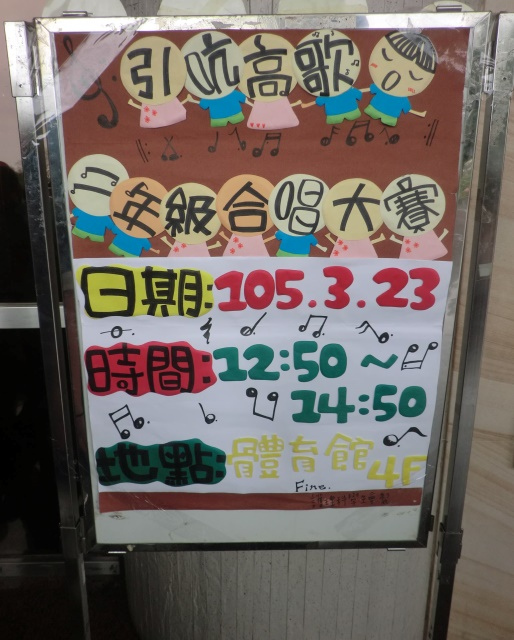 引吭高歌
11年級合唱大賽
日期:105.3.23
時間:12:50～
14:50
地點:體育館4F
Fine.